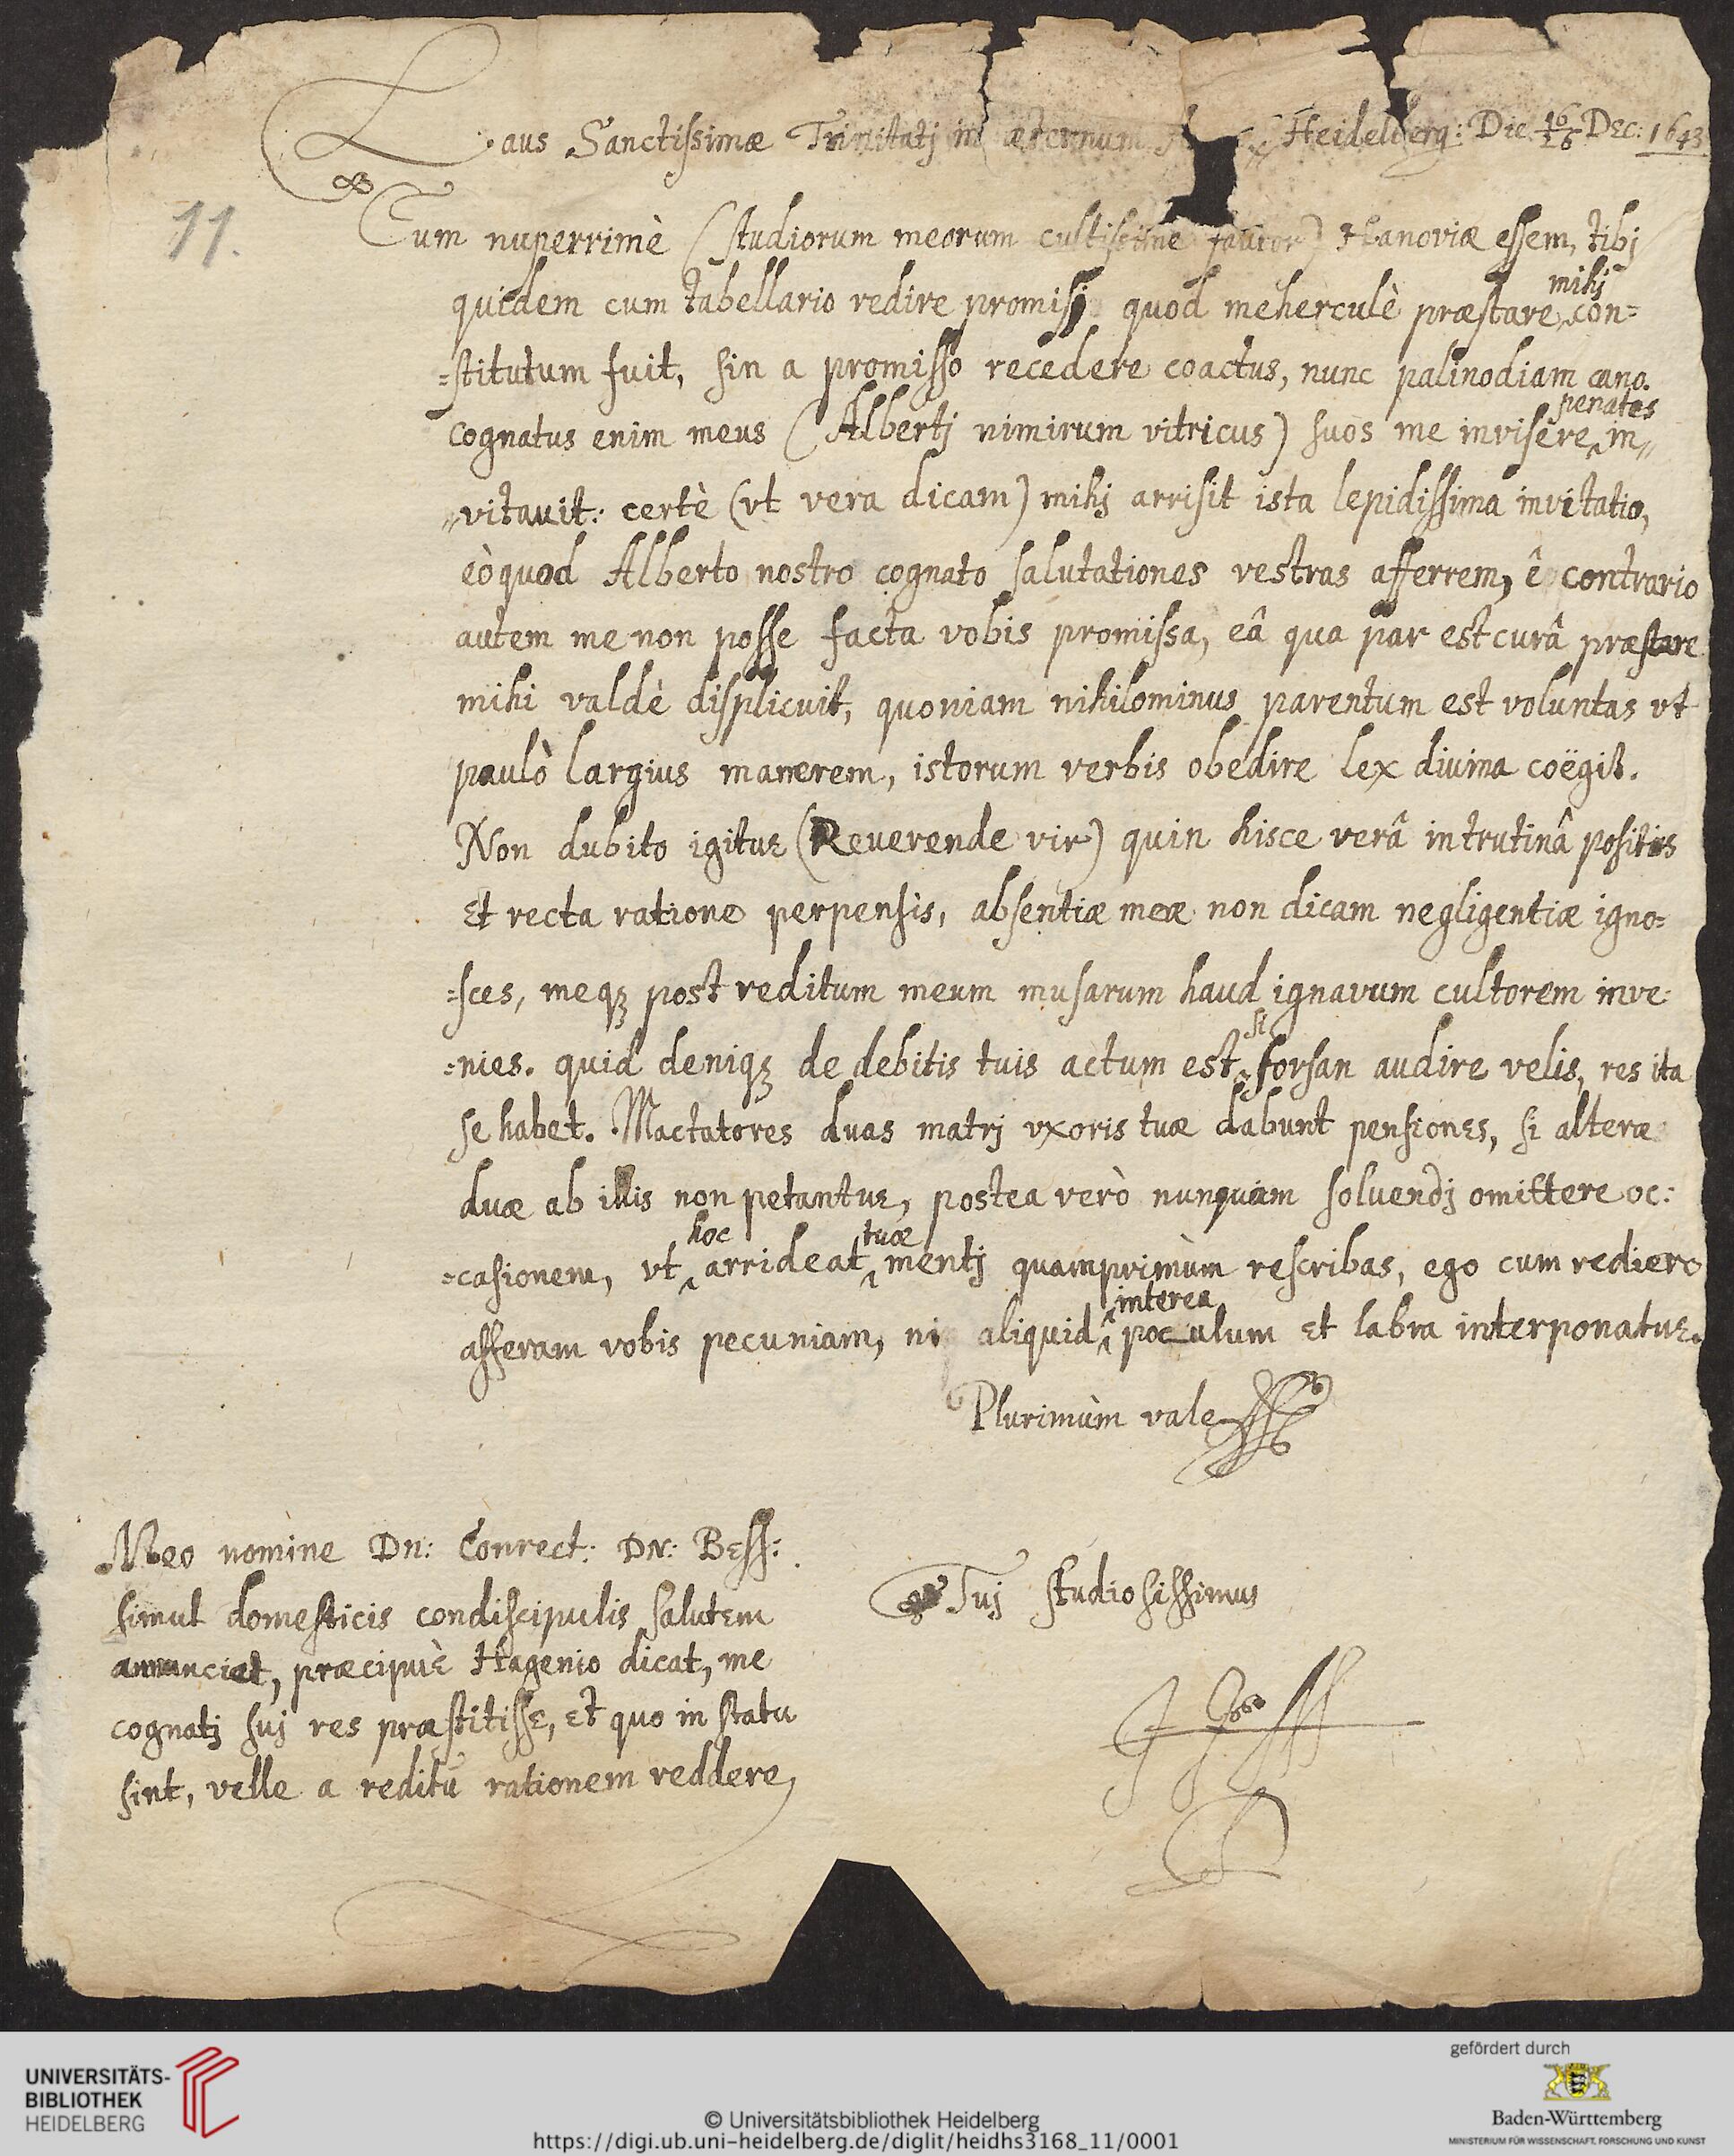 Laus Sanctissimæ Trinitatj in æternum Heidelberg: Die 16/26 Dec: 1643
11.
Cum nuperrimè (studiorum meorum cultissime fautor) Hanoviæ essem, tibj
quidem cum tabellario redire promisi quod meherculè præstare mihj con=
=stitutum fuit, sin a promisso recedere coactus, nunc palinodiam cano.
cognatus enim meus (Albertj nimirum vitricus) suos me invisere penates in„
„vitauit: certè (vt vera dicam) mihj arrisit ista lepidissima invitatio,
eòquod Alberto nostro cognato salutationes vestras afferrem, ê contrario
autem me non posse facta vobis promissa, eâ qua par est curâ præstare
mihi valdè displicuit, quoniam nihilominus parentum est voluntas vt
paulò largius manerem, istorum verbis obedire lex diuina coëgit.
Non dubito igitur (Reuerende vir) quin hisce verâ in trutinâ positis
Et recta ratione perpensis, absentiæ meæ non dicam negligentiæ igno=
=sces, meqꝫ post reditum meum musarum haud ignavum cultorem inve=
=nies. quid deniqꝫ de debitis tuis actum est si forsan audire velis, res ita
se habet. Mactatores duas matrj vxoris tuæ dabunt pensiones, si alteræ
duæ ab illis non petantur, postea verò nunquam soluendj omittere oc:
=casionem, vt hoc arrideat tuæ mentj quamprimùm rescribas, ego cum rediero
afferam vobis pecuniam, ni aliquid interea poculum Et labra interponatur.
Plurimùm vale
Meo nomine Dn: Conrect: DN: Bess:
simul domesticis condiscipulis salutem
annunciet, præcipuè Hagenio dicat, me
cognatj suj res præstitisse, Et quo in statu
sint, velle a reditu rationem reddere,
Tuj studiosissimus
UNIVERSITÄTS-
BIBLIOTHEK
HEIDELBERG
© Universitätsbibliothek Heidelberg
https://digi.ub.uni-heidelberg.de/diglit/heidhs3168_11/0001
gefördert durch
Baden-Württemberg
MINISTERIUM FÜR WISSENSCHAFT, FORSCHUNG UND KUNST